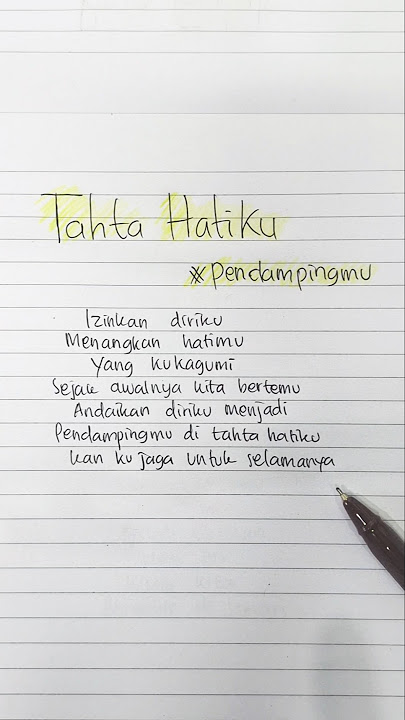 Tahta Hatiku
#Pendampingmu
Izinkan diriku
Menangkan hatimu
Yang kukagumi
Sejak awalnya kita bertemu
Andaikan diriku menjadi
Pendampingmu di tahta hatiku
Kan ku jaga untuk selamanya